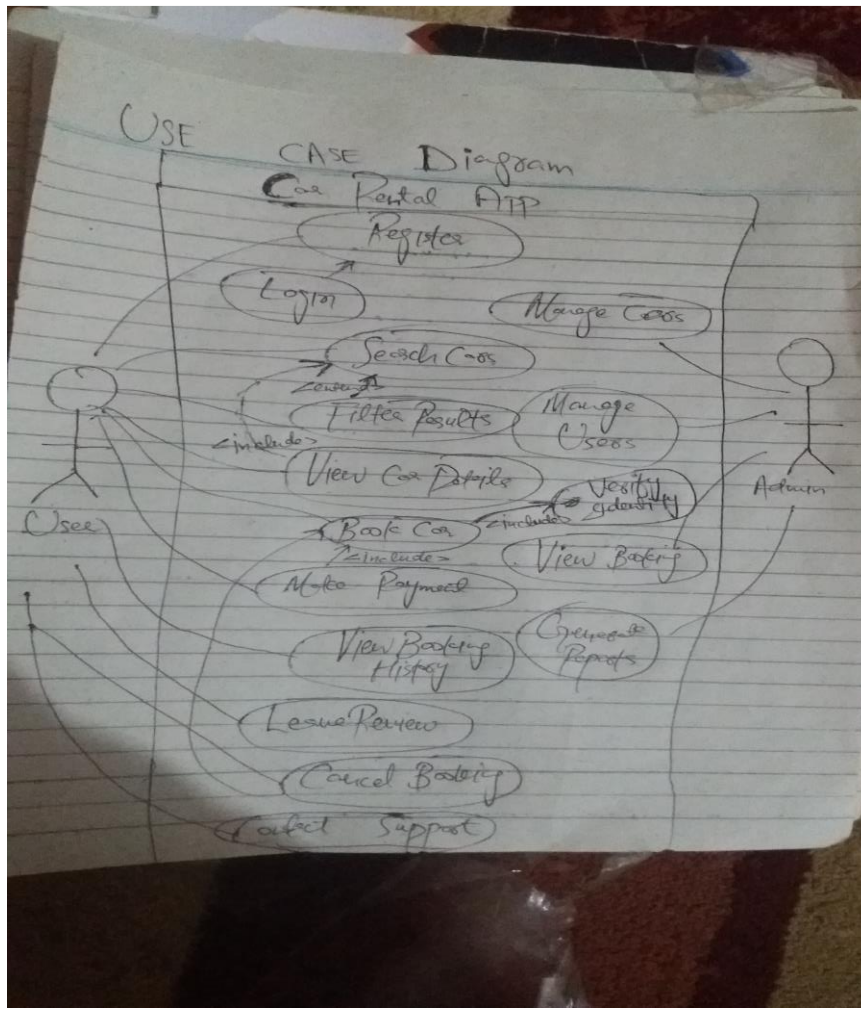 USE CASE Diagram
Car Rental APP
Register
Login
Manage Cars
Search Cars
Filter Results
Manage
Users
<include>
View Car Details
Verify
Identity
Admin
User
Book Car
<include>
<include>
View Booking
Make Payment
View Booking
History
Generate
Reports
Leave Review
Cancel Booking
Contact Support